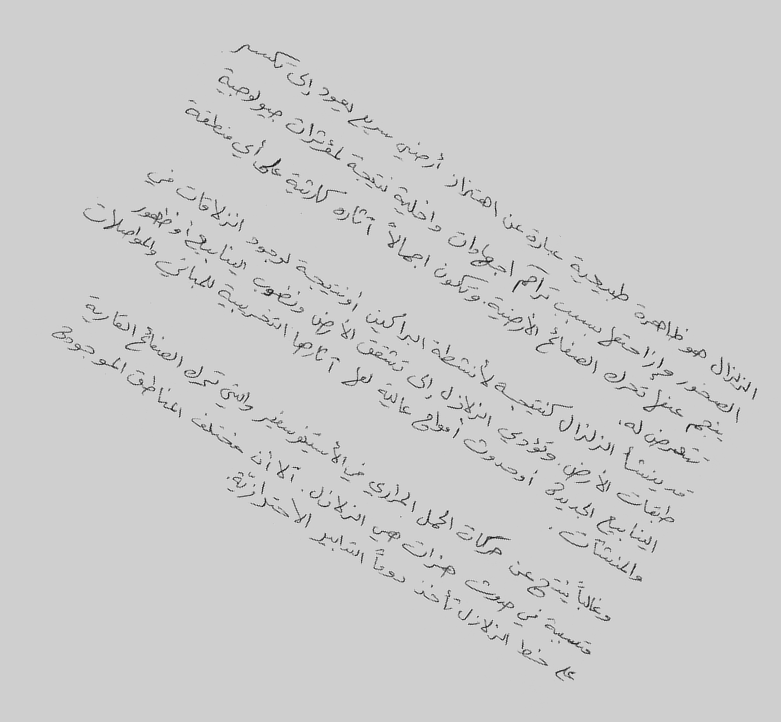 الزلزال هو ظاهرة طبيعية عبارة عن اهتزاز أرضي سريع يعود إلى تكسر
الصخور وإزاحتها بسبب تراكم اجهادات داخلية نتيجة لمؤثرات جيولوجية
ينجم عنها تحرك الصفائح الأرضية. وتكون اجمالاً آثاره كارثية على أي منطقة
تتعرض له.
قد ينشأ الزلزال كنتيجة لأنشطة البراكين أو نتيجة لوجود انزلاقات في
طبقات الأرض. وتؤدي الزلازل إلى تشقق الأرض ونضوب الينابيع أو ظهور
الينابيع الجديدة أو حدوث أمواج عالية لها آثارها التخريبية للمباني والمواصلات
والمنشآت.
وغالباً ينتج عن حركات الحمل الحراري في الأستينوسفير والتي تحرك الصفائح القارية
متسببة في حدوث هزات هي الزلازل. ألا أن مختلف المناطق الموجودة
على خط الزلازل تأخذ دوماً التدابير الاحترازية.